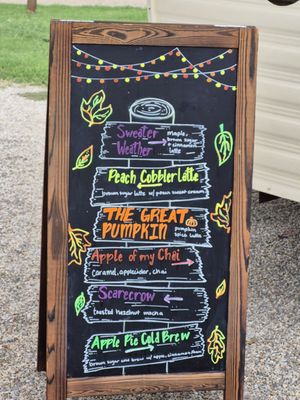 Sweater
Weather
maple,
brown sugar
+ cinnamon
latte
Peach Cobbler Latte
brown sugar latte w/ peach sweet cream
THE GREAT
PUMPKIN
pumpkin
spice latte
Apple of my Chai
caramel, apple cider, chai
Scarecrow
toasted hazelnut mocha
Apple Pie Cold Brew
brown sugar cold brew w/ apple, cinnamon